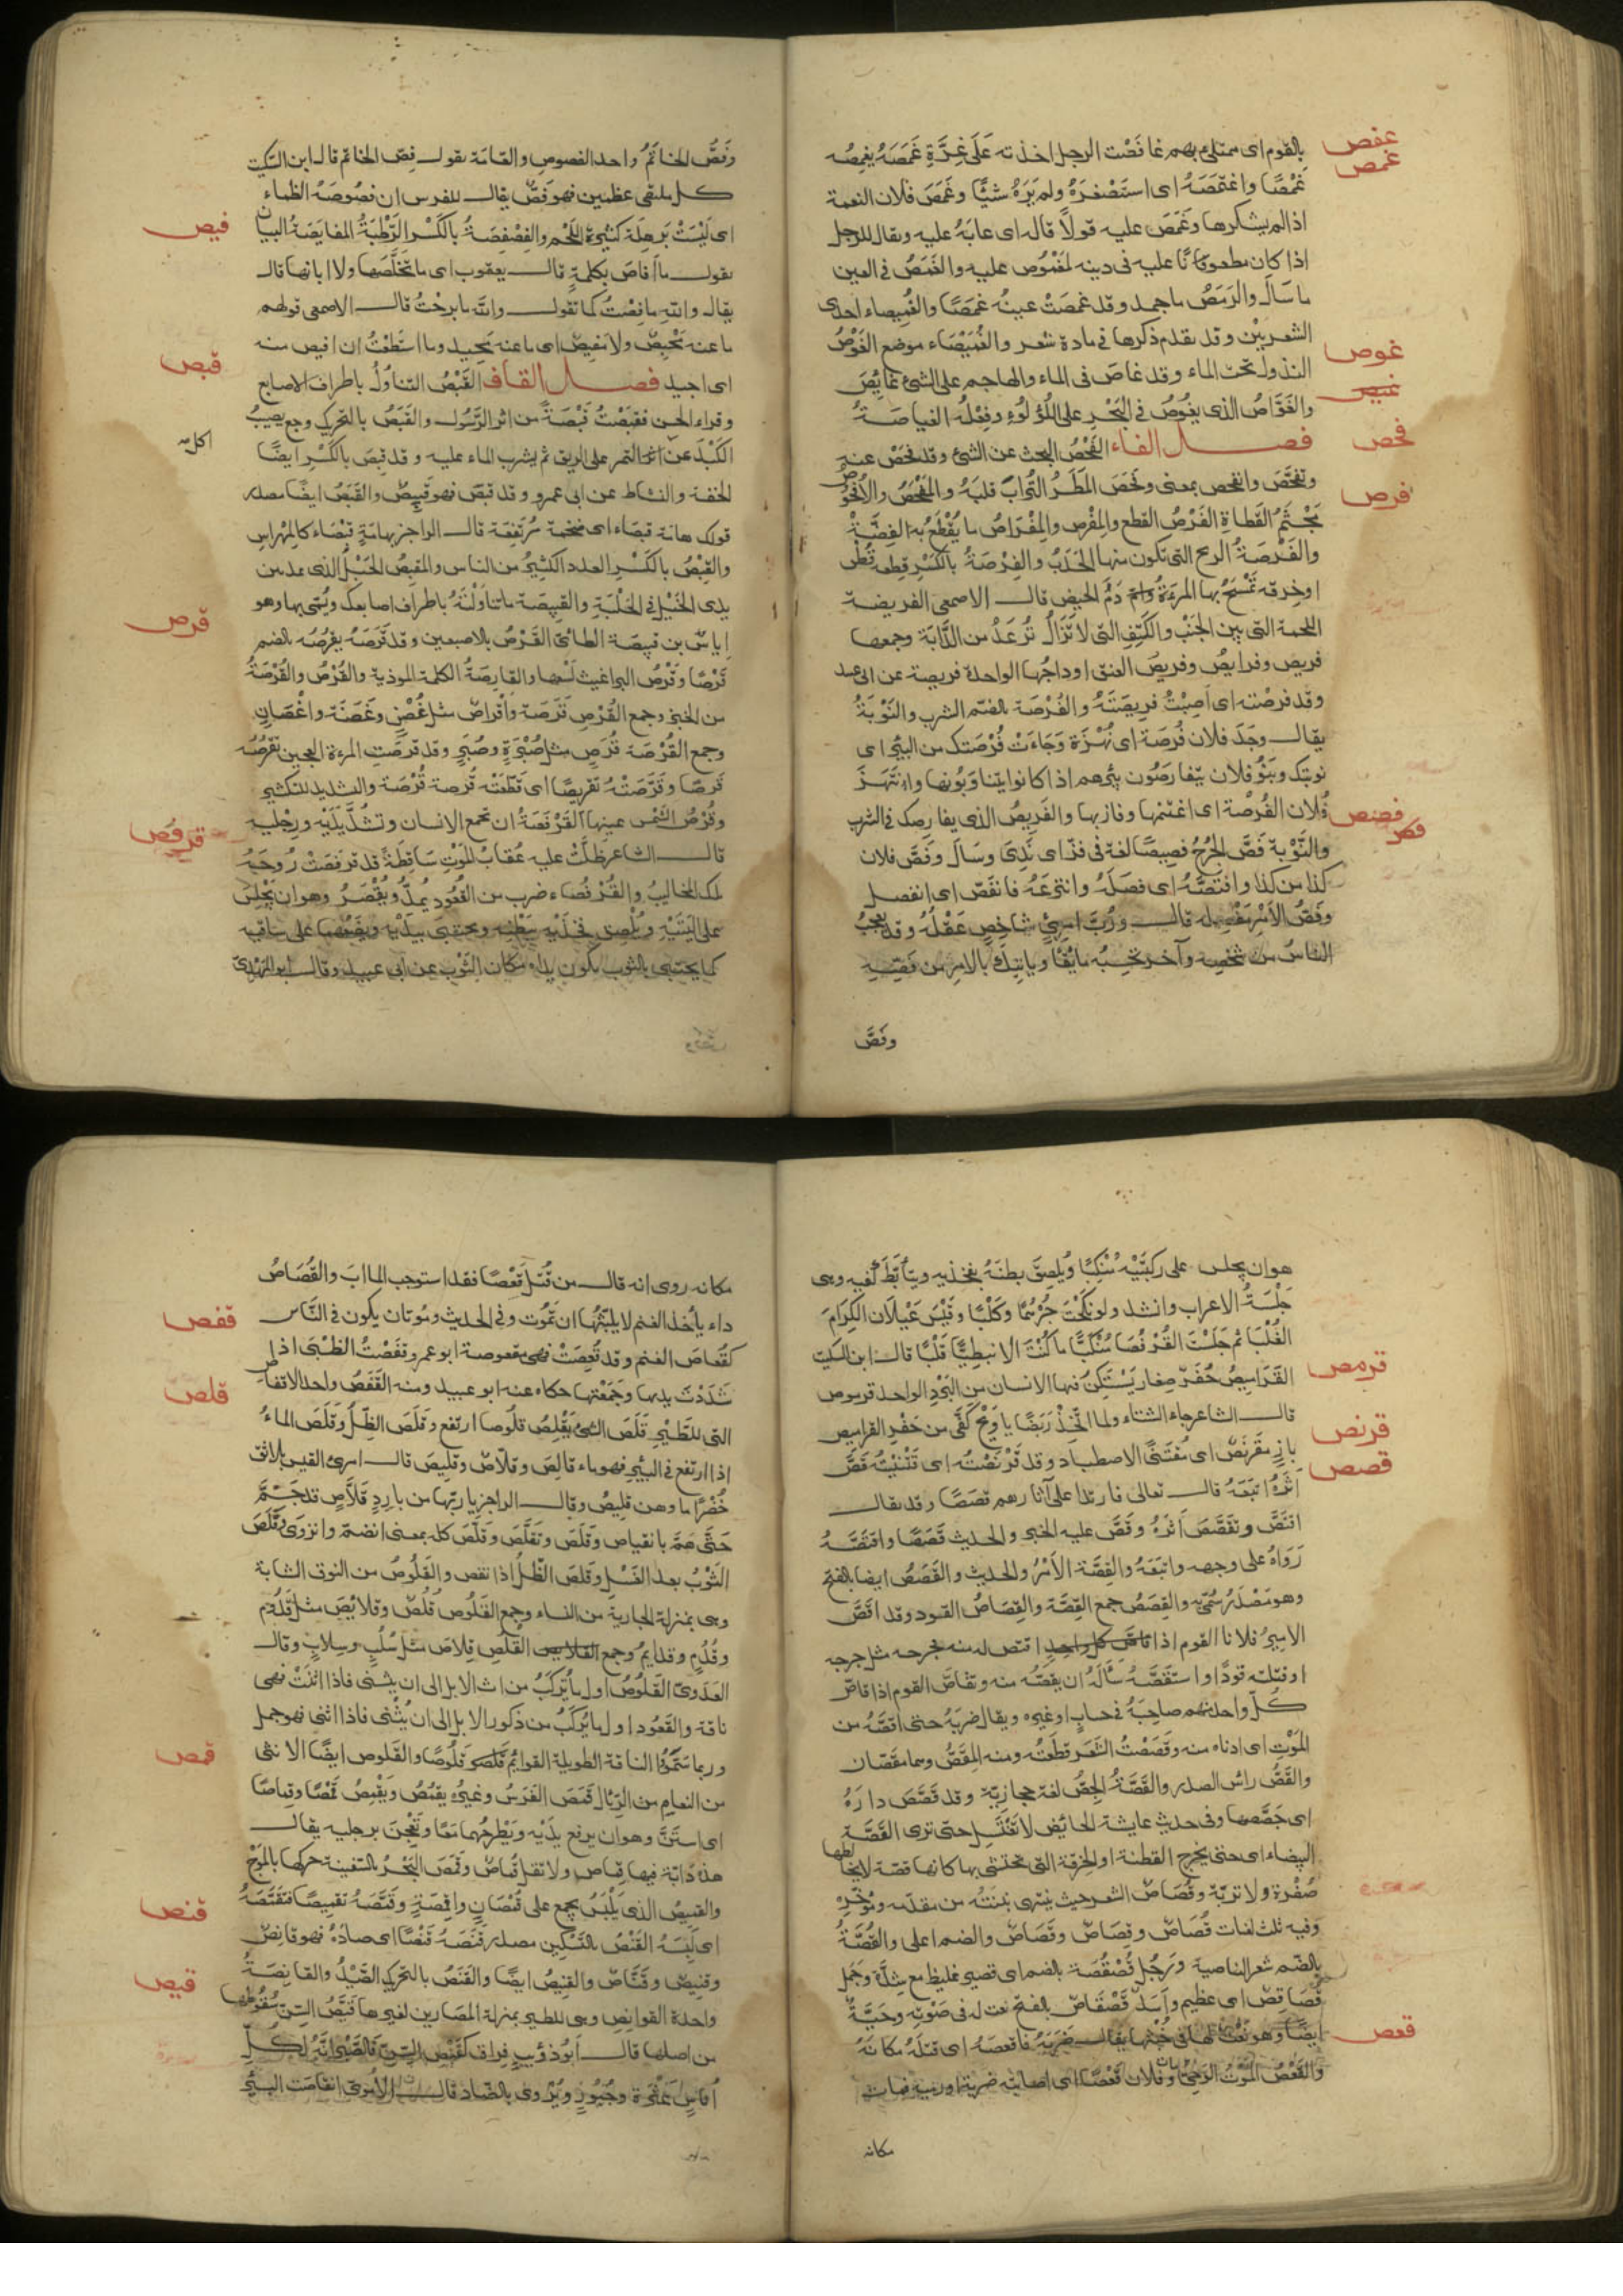 بالقوم اى ممتلئ بهم غافَصْت الرجل اخذته عَلَى غِرَّةٍ غَمَصَهُ يغمِصُه
عفص
غمص
غَمْصًا واغتمَصَهُ اى استَصْغرَهُ ولم يَرَهُ شئًا وغَمَصَ فلان النعمة
اذا لم يشكرها وغَمَصَ عليه قولًا قاله اى عابَهُ عليه ويقال للرجل
اذا كان مطعونًا عليه فى دينه لمغموص عليه والغَمَصُ فى العين
ما سَالَ والرَمَصُ ما جمد وقد غمصَتْ عينُه غمَصًا والغُميصاء احدى
الشعريَيْن وقد تقدم ذكرها فى مادة شعر والغُمَيْصَاء موضع الغَوْصُ
غوص
النزول تحت الماء وقد غاصَ فى الماء والهاجم على الشئ غايِصٌ
غيص
والغَوَّاصُ الذى يغُوصُ فى البَحْرِ على اللُؤْلُوءِ وفِعْلُه الغياصَةُ
فصل الفاء الفَحْصُ البحث عن الشئ وقد فحَصَ عنه
فحص
وتفحَّصَ وافتحص بمعنى وفَحَصَ المَطَرُ التُرابَ قلَبَهُ والمَفْحَصُ والأُفحُوصُ
مَجْثَمُ القَطاةِ الفَرْصُ القطع والمِفْرص والمِفْرَاصُ ما يُقْطَعُ بهِ الفِضَّةُ
فرص
والفَرْصَةُ الريح التى تكون منها الحَدَبُ والفِرْصَةُ بالكَسْرِ قطعه قُطْنٍ
او خِرقه تَمْسَحُ بها المرءَةُ دَمَ الحيض قال الاصمعى الفريصة
اللحمة التى بين الجَنْبِ والكَتِفِ التى لا تَزَالُ تُرعَدُ من الدَّابَة وجمعها
فريص وفرايصُ وفريصُ العنق اوداجُها الواحدة فريصة عن ابى عبيد
وقد فرصْته اى اَصِبْتُ فريصَتَهُ والفُرْصَة بالضم الشرب والنَوْبَةُ
يقال وجَدَ فلان فُرصَة اى نُهْزَة وَجَاءَتْ فُرْصَتك من البئر اى
نوبتك وبَنُو فلان يتفارصُون بئرهم اذا كانوا يتناوبُونها وانتَهَزَ
فلان الفُرصَة اى اغتنمها وفاز بها والفَريصُ الذى يفارصك فى الشرب
فصص
فص
والنَوْبة فَصَّ الجُرْحُ فصِيصًا لغة فى فزّ اى نَدِىَ وسَالَ وفَصَّ فلان
كذا من كذا وافتَصَّهُ اى فصَلَهُ وانتزعَهُ فانفَصّ اى انفصل
وفَصُّ الأَمْرِ مَفْصِله قال ورُبَّ امرِئٍ شاخِصٍ عَقْلُهُ وقد يعجبُ
الناسُ من شخصِه وآخر تحسِبُه مايُقًا وياتِيكَ بالامر من فَصِّهِ
وفصَّ
وَفَصُّ الخاتَمِ واحد الفصوص والعَامّة تقول فِصّ الخاتم قال ابن السّكّيت
كل ملتقى عظمين فهو فَصّ يقال للفرس ان فصُوصَهُ الظماء
اى لَيْسَتْ بَرهِلَة كثيرة اللَّحْم والفِصْفِصَةُ بالكَسْر الرَّطْبَةُ المفايصَةُ البيان
فيص
يقول ما أَفاصَ بكلمةٍ قال يعقوب اى ما تخلَّصَها ولا ابانها قال
يقال والله ما فِصْتُ كما تقول والله ما برِحْتُ قال الاصمعى قولهم
ما عنه مَحْيِصٌ ولا مَفيصٌ اى ما عنه مَحِيد وما استَطعْتُ ان افيص منه
اى احيد فصل القاف القَبْصُ التناوُلُ باطراف الاصابع
قبص
وقراء الحسن فقبَصْتُ قَبْصَةً من اثر الرَّسُول والقَبَصُ بالتحريك وجع يصيبُ
الكَبْدَ عن التمر على الريق ثم يشرب الماء عليه وقد قبِصَ بالكَسْرِ ايضًا
اكل صح
الخفة والنشاط عن ابى عمرو وقد قبصَ فهو قبيصٌ والقَبَصُ ايضًا مصدر
قولك هامَة قبصَاء اى ضخمة مُرتَفِعَة قال الراجز بهامَةٍ قبْصَاءَ كالمِهْراسِ
والقِبْصُ بالكَسْرِ العدد الكثيرُ من الناس والمقبصُ الحَبْلُ الذى يمد بين
يدى الخَيْلِ فى الحَلْبَةِ والقبِيصَة ما تناوَلْتَهُ باطراف اصابعك وبُسمّى بها وهو
إياسُ بن قبيصَة الطائىّ القَرْصُ بالاصبعين وقد قَرَصَهُ يقرُصُه بالضم
قرص
قَرْصًا وقَرْصُ البراغيث لَسْعها والقارصَةُ الكلمة الموذية والقُرْصُ والقُرْصَةُ
من الخبز وجمع القُرْصِ قِرَصَة وأَقْراصٌ مثل غُصْنٍ وغِصَنَة واغْصَانٍ
وجمع القُرْصَة قُرَصٍ مثل صُبْرَةٍ وصُبَرٍ وقد قرصَتِ المرءة العجين تقرُصُه
قَرصًا وقَرَّصَتْهُ تقريصًا اى قَطّعَتْه قُرصة قُرْصَة والتشديد للتكثير
وقُرْصُ الشَمْسِ عينها القَرْفَصَةُ ان تجمع الانسان وتشُدَّ يَدَيْه ورِجْلَيه
قرفص
قال الشاعر ظلَّتْ عليه عُقابُ المَوْتِ ساقِطَةً قد قرفَصَتْ رُوحَهُ
تلك المخاليبُ والقُرفُصَاء ضرب من القُعُود يُمدُّ ويُقْصَرُ وهو ان يَجْلِسَ
على اليَتَيْهِ ويُلْصِق فَخِذَيْه ببَطْنِه ويحتبى بيَدَيْه ويضعهما على ساقيه
كما يحتبى بالثوب تكون يداه مكان الثَّوْب عن ابى عبيد وقال ابو المهدىّ
هو ان يجلس على ركبَتَيْه مُنْكبًّا ويُلصِق بطنَهُ بفخذيه ويتأَبّطَ كفيه وهى
جَلْسَةُ الاعراب وانشد ولو نَكَحْتَ جُرْهُمًا وكَلْبًا وقَيْسَ عَيْلَان الكِرَامَ
الغُلْبَا ثم جَلَسْتَ القُرْفُصَا مُنْكَبَّا ما كُنْتَ الَّا نبطِيًّا قَلْبًا قال ابن السكيت
القَرَاميصُ حُفَرٌ صِغار يَسْتكِنّ فيها الانسان من البَرْدِ الواحد قرموص
قرمص
قال الشاعر جاء الشتاء ولما اتّخِذْ رَبَضًا يا وَيْحَ كَفَّى من حَفْرِ القراميص
بازٍ مقَرنَصٌ اى مُقتَنًى الاصطياد وقد قَرْنَصْتُه اى تَقنَّيْتُه قَصَّ
قرنص
أَثَرَهُ اتبَعَهُ قال تعالى فارتدا على آثارهم قصَصًا وقد يقال
قصص
اقتَصَّ وتقَصَّصَ أَثَرَهُ وقَصَّ عليه الخبر والحديث قَصَصًا واقتَصَّهُ
رَوَاهُ على وجهه واتبَعَهُ والقِصَّة الأَمْرُ والحديث والقَصَصُ ايضا بالفتح
وهو مَصْدَرُ سُمّىَ به والقِصَصُ جمع القِصَّة والقِصَاصُ القود وقد اقَصَّ
الاميرُ فلانا القوم اذا اقتص له منه فجرحه مثل جرحه
او قتله قودًا واستقَصَّهُ سَأَلَهُ ان يقصّهُ منه وتقاصَّ القوم اذا قاصّ
كُلّ واحد منهم صاحِبَهُ فى حساب او غيره ويقال ضربَهُ حتى اقصَّهُ من
المَوْتِ اى ادناه منه وقَصَصْتُ الشَعَر قطَعْتُه ومنه المِقَصُّ وهما مقَصّان
والقَصُّ راسُ الصدر والقَصَّةُ الجِصُّ لغة حجازيّة وقد قَصَّصَ دارَهُ
اى جَصَّصها وفى حديث عايشة للحائض لا تَغْتَسِل حتى ترى القَصَّةَ
البيضاء اى حتى يخرج القطنة او الخِرقة التى تحتشى بها كانها قصّة لا يخالطها
صُفْرة ولا تربّة وقُصَاصُ الشعر حيث ينتهى نبتَتُه من مقدّمه ومُؤخّرِه
وفيه ثلث لغات قُصَاصٌ وقِصَاصٌ وقَصَاصٌ والضم اعلى والقُصَّةُ
بالضّم شعر الناصية ورَجُلٌ قُصْقُصَة بالضم اى قصير غليظ مع شِدَّة وجَمَلٌ
قُصَاقِصٌ اى عظيم وأَسَدٌ قَصْقَاصٌ بالفتح نعت له فى صَوْتِه وحَيّةٌ
ايضًا وهو نَعْتٌ لها فى خُبْثِها يقال ضرَبَهُ فاقعصَهُ اى قتلَهُ مكانَهُ
قعص
والقَعْصُ المَوْتُ الوَحِىُّ مات فلان قَعْصًا اى اصابته ضربة او رمية فمات
مكانه
مكانه روى انه قال من قُتِلَ قَعْصًا فقد استوجب المابَ والقُعَاصُ
داء يأخذ الغنم لا يلبثُها ان تَمُوت وفى الحديث ومُوتان يكون فى النَّاس
قفص
كقُعَاصَ الغنم وقد قُعِصَتْ فهى مقعوصة ابو عمرو قفَصْتُ الظَبْىَ اذا
شَدَدْتَ يديها وجَمَعْتَها حكاه عنه ابو عبيد ومنه القَفَصُ واحد الاقفاص
قلص
التى للطَّيْرِ قَلَصَ الشئُ يَقْلِصُ قلُوصا ارتفع وقلَصَ الظِّلُ وقَلَصَ الماءُ
اذا ارتفع فى البئر فهو ماء قالِصٌ وقلّاصٌ وقلِيصٌ قال امرئ القيس بلاثق
خُضْرًا ما وهن قليصُ وقال الراجز يا ريّها من باردٍ قَلّاَصٍ قد جَمَّ
حَتَّى هَمَّ بانقياص وقَلَّصَ وتقَلَّصَ وقَلَصَ كله بمعنى انضمّ وانزوَى وقَلَصَ
الثَوْبُ بعد الغَسْلِ وقلصَ الظِّلُ اذا نقص والقَلُوصُ من النوق الشابة
وهى بمنزلة الجارية من النساء وجمع القَلُوصِ قُلُصٌ وقلايْصُ مثل قَدُومٍ
وقُدُمٍ وقدايمُ وجمع القُلُص قِلاصٌ مثل سُلُبٍ وسِلابٍ وقال
العَدَوىّ القَلُوصُ اول ما يُركَبُ من اناث الابل الى ان يثنى فاذا اثْنَتْ فهى
ناقة والقَعُود اول ما يُركَبُ من ذكور الابل الى ان يُثْنى فاذا اثنى فهو جمل
وربما سَمَّوُا الناقة الطويلة القوايُم قَلُوصًا والقلوص ايضًا الانثى
قمص
من النعام من الرِّئال قَمَصَ الفَرَسُ وغيرُه يقمُصُ ويقْمِصُ قَمْصًا وقِماصًا
اى استَنَّ وهو ان يرفع يدَيْه ويَطْرحُهما مَعًا ويَعْجُنَ برجليه يقال
هذه دَابّة فيها قِماص ولا تقل قُماصٌ وقَمَصَ البَحْرُ بالسّفينة حركها بالمَوْجِ
والقميصُ الذى يَلْبَسُ يجمع على قُمْصَانٍ واقمِصَةٍ وقَمَّصَهُ تقميصًا فتَقَمَّصَهُ
قنص
اى لَبِسَهُ القَنْصُ بالتسكين مصدر قَنَصَهُ قَنْصًا اى صادَهُ فهو قانِصٌ
وقنيصٌ وقَنّاصٌ والقنيصُ ايضًا والقَنَصُ بالتحريك الصَّيْدُ والقانِصَةُ
قيص
واحدة القوانِصِ وهى للطير بمنزلة المصَارين لغيرها قَيْصُ السّن سُقُوطها
من اصلها قال أَبُو ذؤيب فِراق كَقَيْصِ السِّنّ فالصَّبْرَ انّهُ لِكُلّ
أُناسٍ عَثْرَة وجُبُورُ ويُروى بالضّاد قال الأمَوىّ انقاصَت البئر